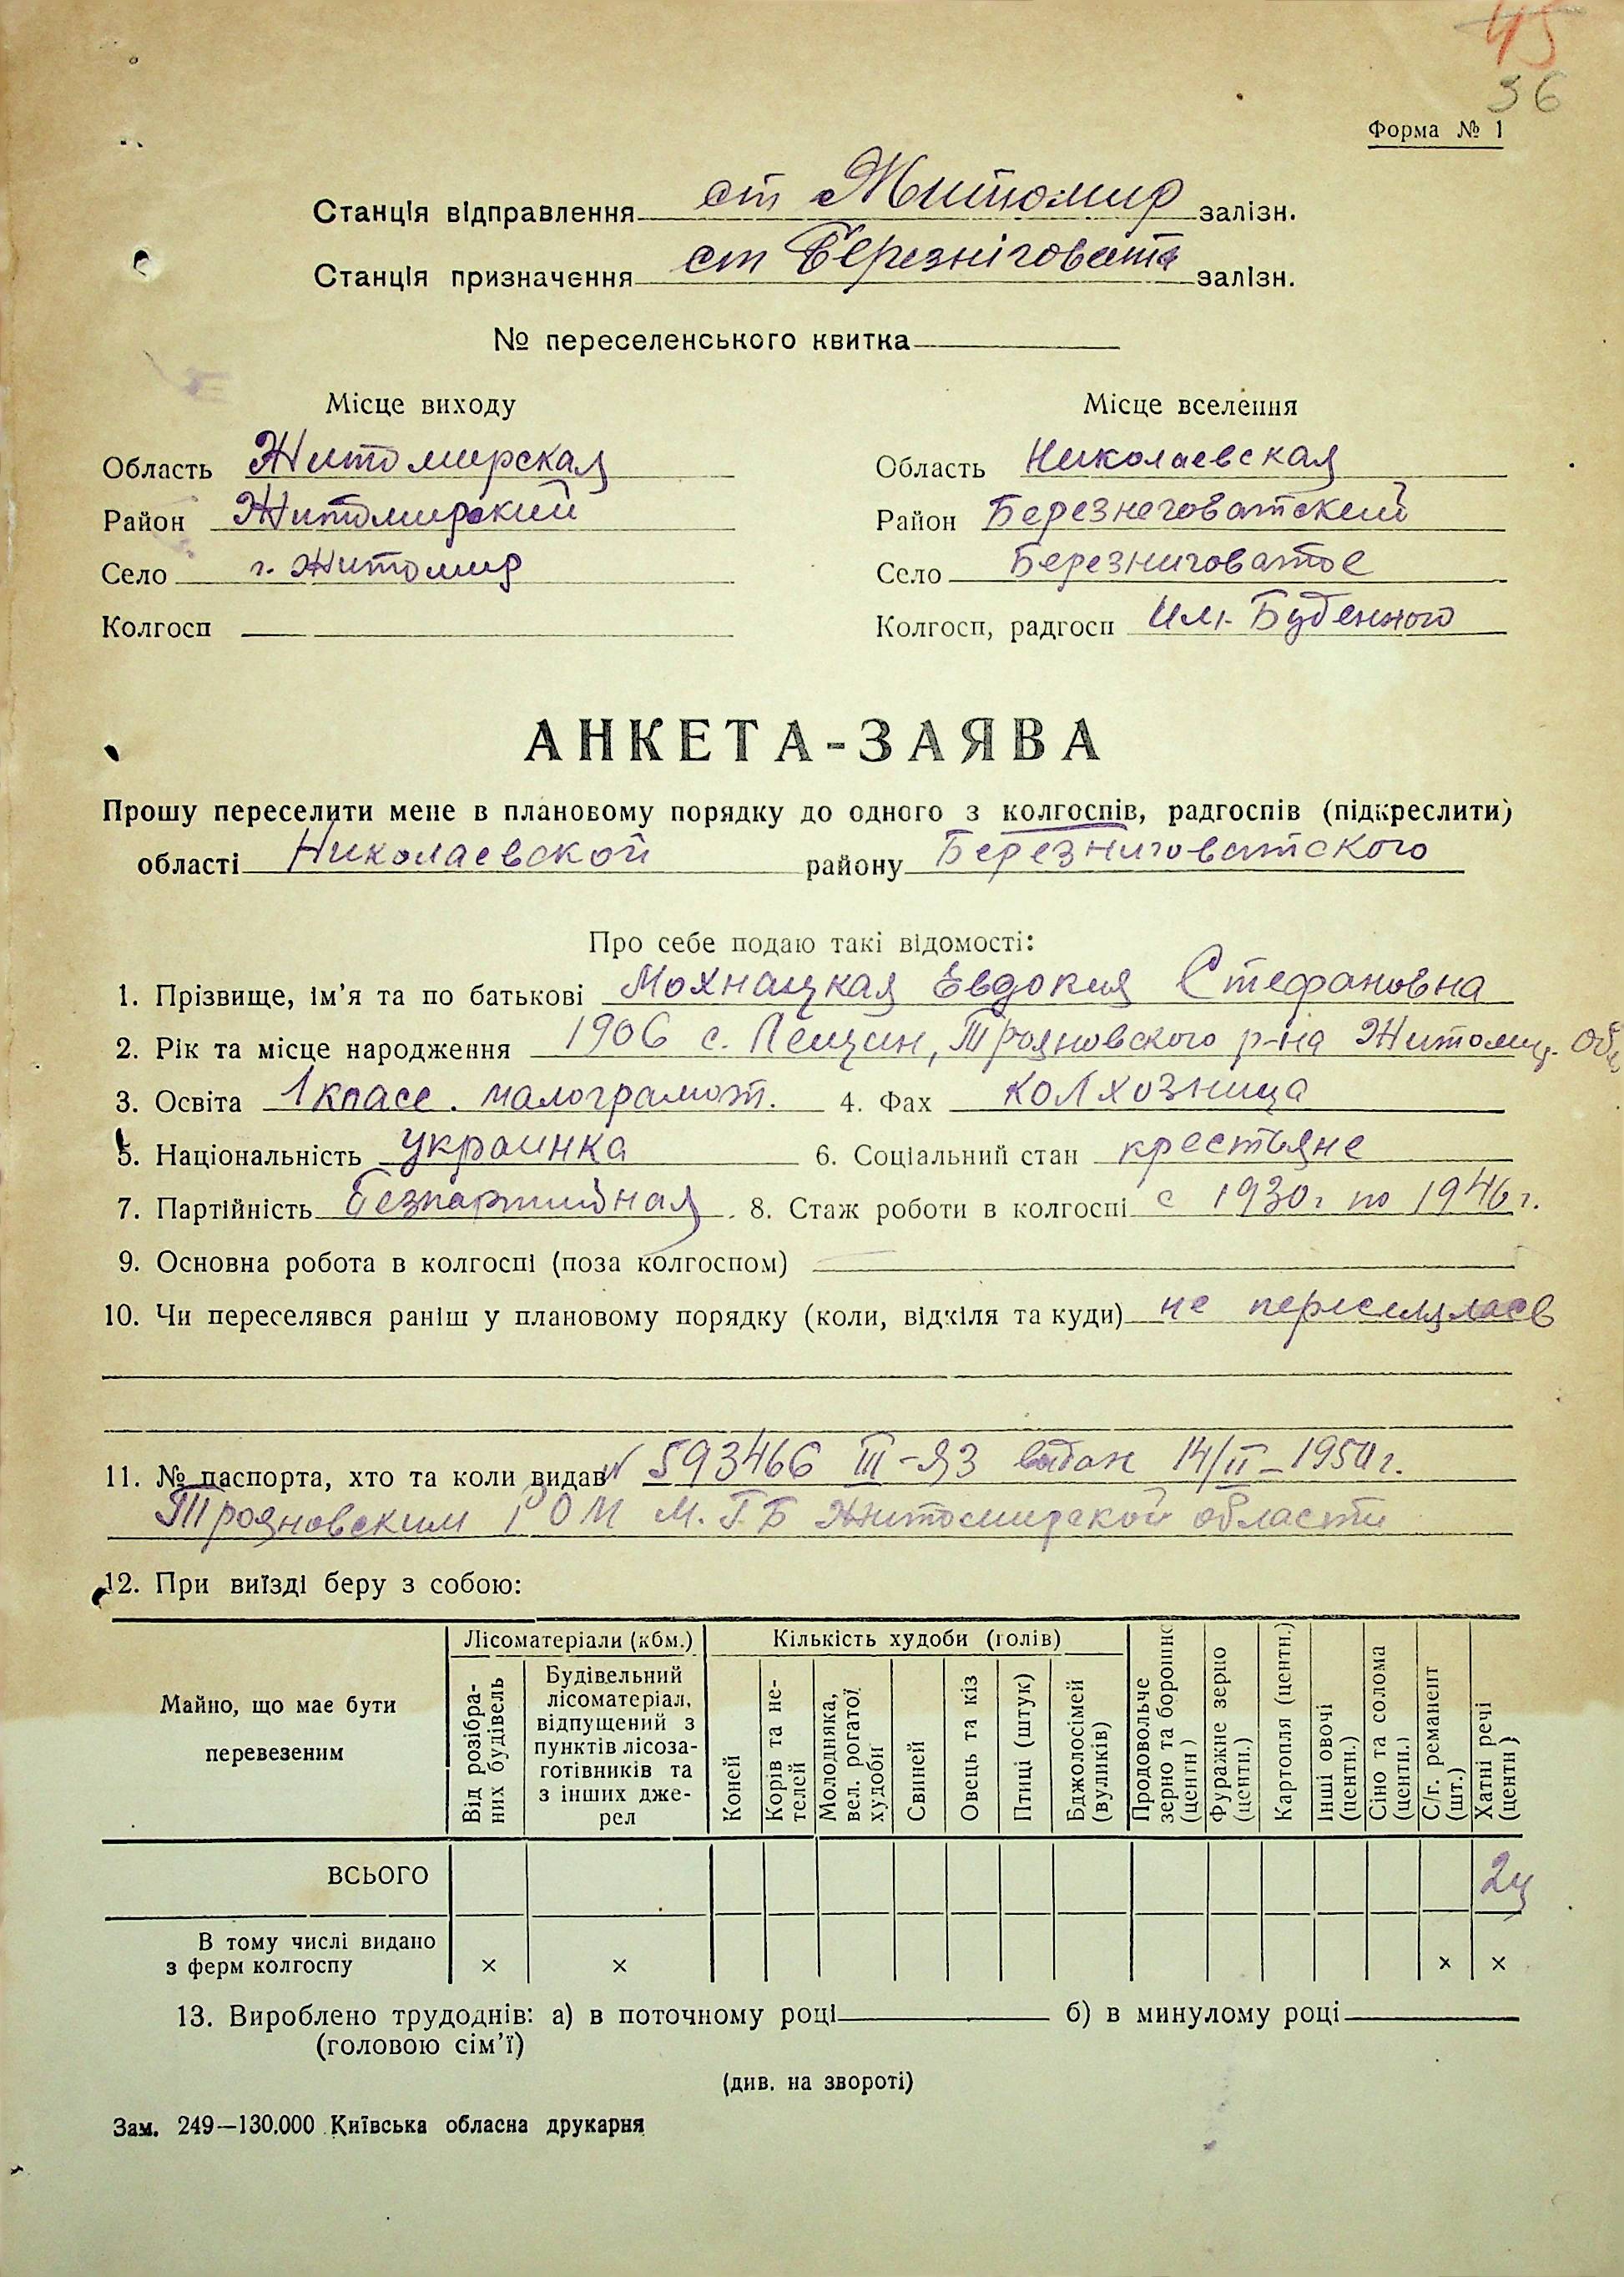 45
36
Форма № 1
Станція відправлення ст Житомир залізн.
Станція призначення ст Березніговата залізн.
№ переселенського квитка
Місце виходу Місце вселення
Область Житомирская Область Николаевская
Район Житомирский Район Березнеговатский
Село г. Житомир Село Березниговатое
Колгосп Колгосп, радгосп Им. Буденного
АНКЕТА-ЗАЯВА
Прошу переселити мене в плановому порядку до одного з колгоспів, радгоспів (підкреслити)
області Николаевской району Березниговатского
Про себе подаю такі відомості:
1. Прізвище, ім’я та по батькові Мохнацкая Евдокия Стефановна
2. Рік та місце народження 1906 с. Пещин, Трояновского р-на Житомир. Обл
3. Освіта 1 класс. малограмот. 4. Фах колхозница
5. Національність украинка 6. Соціальний стан крестьяне
7. Партійність безпартийная 8. Стаж роботи в колгоспі с 1930г по 1946г.
9. Основна робота в колгоспі (поза колгоспом)
10. Чи переселявся раніш у плановому порядку (коли, відкіля та куди) не переселялась
11. № паспорта, хто та коли видав № 593466 III-ЯЗ выдан 14/II-1950г.
Трояновским РОМ М.Г.Б Житомирской области
12. При виїзді беру з собою:
Майно, що має бути перевезеним
Лісоматеріали (кбм.)
Від розібраних будівель
Будівельний лісоматеріал, відпущений з пунктів лісозаготівників та з інших джерел
Кількість худоби (голів)
Коней
Корів та нетелей
Молодняка, вел. рогатої худоби
Свиней
Овець та кіз
Птиці (штук)
Бджолосімей (вуликів)
Продовольче зерно та борошно (центн)
Фуражне зерно (центн.)
Картопля (центн.)
Інші овочі (центн.)
Сіно та солома (центн.)
С/г. реманент (шт.)
Хатні речі (центн)
ВСЬОГО 2ц
В тому числі видано
з ферм колгоспу × × × ×
13. Вироблено трудоднів: а) в поточному році б) в минулому році
(головою сім’ї)
(див. на звороті)
Зам. 249—130.000 Київська обласна друкарня